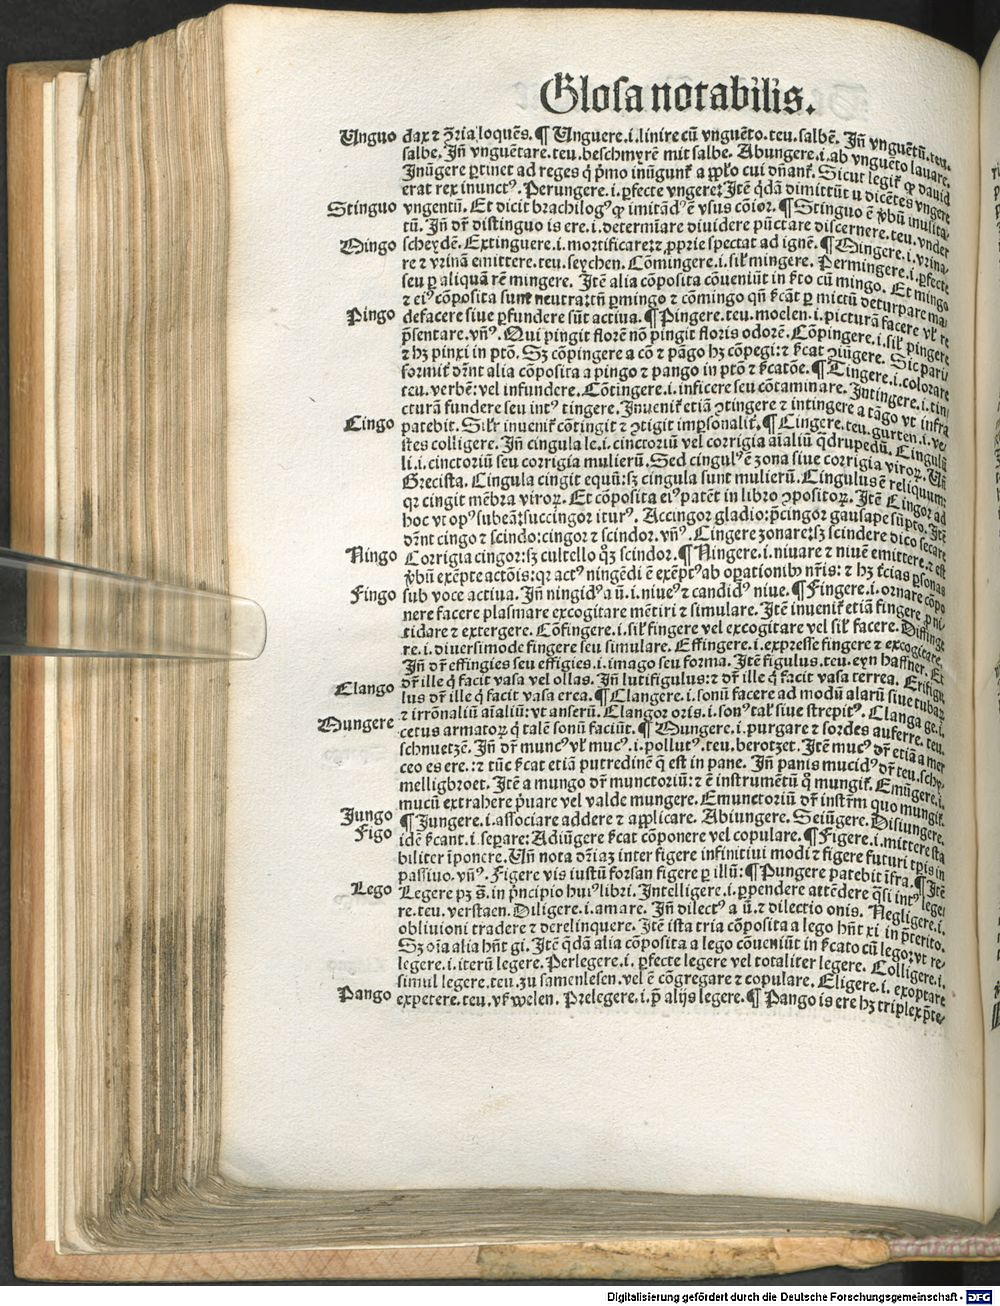 Glosa notabilis.
Unguo dax ⁊ ꝯtria loquēs. ¶ Unguere .i. linire cū vnguēto. teu. salbē. Jn̄ vnguētū. teu.
salbe. Jn̄ vnguētare. teu. beschmyrē mit salbe. Abungere .i. ab vnguēto lauare.
Jnūgere ꝑtinet ad reges q̄ pͥmo inūgunt᷑ a ꝓp̄lo cui dn̄ant᷑. Sicut legit᷑ ꝙ dauid
erat rex inunctꝰ. Perungere .i. ꝑfecte vngere: Jtē q̄dā dimittūt u dicētes vngere
Stinguo vngentū. Et dicit brachilogꝰ ꝙ imitādꝰ ē vsus cōior. ¶ Stinguo ē v̄bū inusita⸗
tū. Jn̄ dr̄ distinguo is ere .i. determīare diuidere pūctare discernere. teu. vnder
Mingo scheydē. Extinguere .i. mortificare: ⁊ ꝓprie spectat ad ignē. ¶ Mingere .i. vrina⸗
re ⁊ vrinā emittere. teu. seychen. Cōmingere .i. sil᷑ mingere. Permingere .i. ꝑfecte
seu ꝑ aliquā rē mingere. Jtē alia cōposita cōueniūt in s̄cto cū mingo. Et mingo
⁊ eiꝰ cōposita sunt neutra: tn̄ ꝑmingo ⁊ cōmingo qn̄ s̄cāt ꝑ mictū deturpare ma⸗
Pingo defacere siue ꝑfundere sūt actiua. ¶ Pingere. teu. moelen .i. picturā facere vl᷑ re
p̄sentare. vn̄ꝰ. Qui pingit florē nō pingit floris odorē. Cōpingere .i. sil᷑ pingere
⁊ hꝫ pinxi in ptō. Sꝫ cōpingere a cō ⁊ pāgo hꝫ cōpegi: ⁊ s̄cat ꝯiūgere. Sic pari⸗
formit᷑ dr̄nt alia cōposita a pingo ⁊ pango in ptō ⁊ s̄catōe. ¶ Tingere .i. colorare
teu. verbē: vel infundere. Cōtingere .i. inficere seu cōtaminare. Jntingere .i. tin⸗
cturā fundere seu intꝰ tingere. Jnuenit᷑ etiā ꝯtingere ⁊ intingere a tāgo vt infra
Cingo patebit. Sil᷑r inuenit᷑ cōtingit ⁊ ꝯtigit impsonalit᷑. ¶ Cingere. teu. gurten .i. ve⸗
stes colligere. Jn̄ cingula le .i. cinctoriū vel corrigia aīaliū qdrupedū. Cingulū
li .i. cinctoriū seu corrigia mulierū. Sed cingulꝰ ē zona siue corrigia viroꝝ. Un̄
Grecista. Cingula cingit equū: sꝫ cingula sunt mulierū. Cingulus ē reliquum:
qꝛ cingit mēbra viroꝝ. Et cōposita eiꝰ patēt in libro ꝯpositoꝝ. Jtē Cingor ad
hoc vt opꝰ subeā: succingor iturꝰ. Accingor gladio: p̄cingor gausape sūpto. Jtē
dr̄nt cingo ⁊ scindo: cingor ⁊ scindor. vn̄ꝰ. Cingere zonare: sꝫ scindere dico secare
Ningo Corrigia cingor: sꝫ cultello qꝫ scindor. ¶ Ningere .i. niuare ⁊ niuē emittere. ⁊ est
v̄bū exēpte actōis: qꝛ actꝰ ningēdi ē exēptꝰ ab oꝑationibꝰ nr̄is: ⁊ hꝫ t̄cias psonas
Fingo sub voce actiua. Jn̄ ningidꝰ a ū .i. niueꝰ ⁊ candidꝰ niue. ¶ Fingere .i. ornare cōpo
nere facere plasmare excogitare mētiri ⁊ simulare. Jtē inuenit᷑ etiā fingere ꝓ ni⸗
tidare ⁊ extergere. Cōfingere .i. sil᷑ fingere vel excogitare vel sil᷑ facere. Diffinge
re .i. diuersimode fingere seu simulare. Effingere .i. expresse fingere ⁊ excogitare.
Jn̄ dr̄ effingies seu effigies .i. imago seu forma. Jtē figulus. teu. eyn haffner. Et
dr̄ ille q̄ facit vasa vel ollas. Jn̄ lutifigulus: ⁊ dr̄ ille q̄ facit vasa terrea. Erifigu
Clango lus dr̄ ille q̄ facit vasa erea. ¶ Clangere .i. sonū facere ad modū alarū siue tubaꝝ
⁊ irrōnaliū aīaliū: vt anserū. Clangor oris .i. sonꝰ tal᷑ siue strepitꝰ. Clanga ge .i.
Mungere cetus armatoꝝ q̄ talē sonū faciūt. ¶ Mungere .i. purgare ⁊ sordes auferre. teu.
schnuetzē. Jn̄ dr̄ muncꝰ vl᷑ mucꝰ .i. pollutꝰ. teu. berotzet. Jtē mucꝰ dr̄ etiā a mer
ceo es ere.: ⁊ tūc s̄cat etiā putredinē q̄ est in pane. Jn̄ panis mucidꝰ dr̄ teu. schy⸗
melligbroet. Jtē a mungo dr̄ munctoriū: ⁊ ē instrumētū qͦ mungit᷑. Emūgere .i.
mucū extrahere pͥuare vel valde mungere. Emunctoriū dr̄ instr̄m quo mungit᷑.
Jungo ¶ Jungere .i. associare addere ⁊ applicare. Abiungere. Seiūgere. Disiungere.
Figo idē s̄cant .i. separe: Adiūgere s̄cat cōponere vel copulare. ¶ Figere .i. mittere sta
biliter īponere. Un̄ nota dr̄iaꝫ inter figere infinitiui modi ⁊ figere futuri tp̄is in
passiuo. vn̄ꝰ. Figere vis iustū forsan figere ꝑ illū: ¶ Pungere patebit īfra. ¶ Jtē
Lego Legere pꝫ s̄. in pͥncipio huiꝰ libri. Jntelligere .i. ꝑpendere attēdere q̄si intꝰ lege⸗
re. teu. verstaen. Diligere .i. amare. Jn̄ dilectꝰ a ū. ⁊ dilectio onis. Negligere .i.
obliuioni tradere ⁊ derelinquere. Jtē ista tria cōposita a lego hn̄t xi in p̄terito.
Sꝫ oīa alia hn̄t gi. Jtē q̄dā alia cōposita a lego cōueniūt in s̄cato cū lego: vt re⸗
legere .i. iterū legere. Perlegere .i. ꝑfecte legere vel totaliter legere. Colligere .i.
simul legere. teu. zu samenlesen. vel ē cōgregare ⁊ copulare. Eligere .i. exoptare
Pango expetere. teu. vſ᷑welen. Prelegere .i. p̄ alijs legere. ¶ Pango is ere hꝫ triplex p̄te⸗
Digitalisierung gefördert durch die Deutsche Forschungsgemeinschaft - DFG